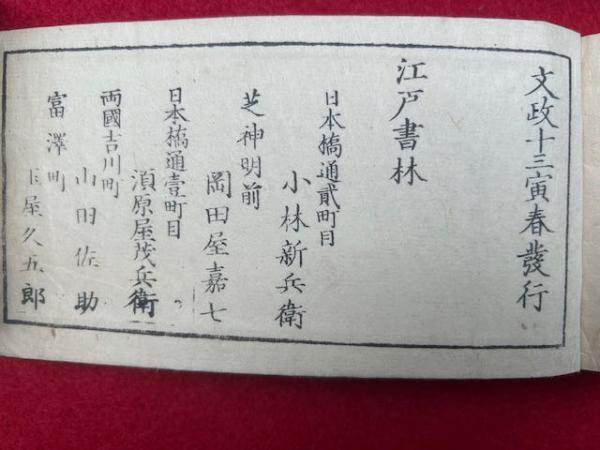 文政十三寅春發行
江戸書林
日本橋通貳町目
小林新兵衛
芝神明前
岡田屋嘉七
日本橋通壹町目
須原屋茂兵衛
両國吉川町
山田佐助
富澤町
屋久五郎